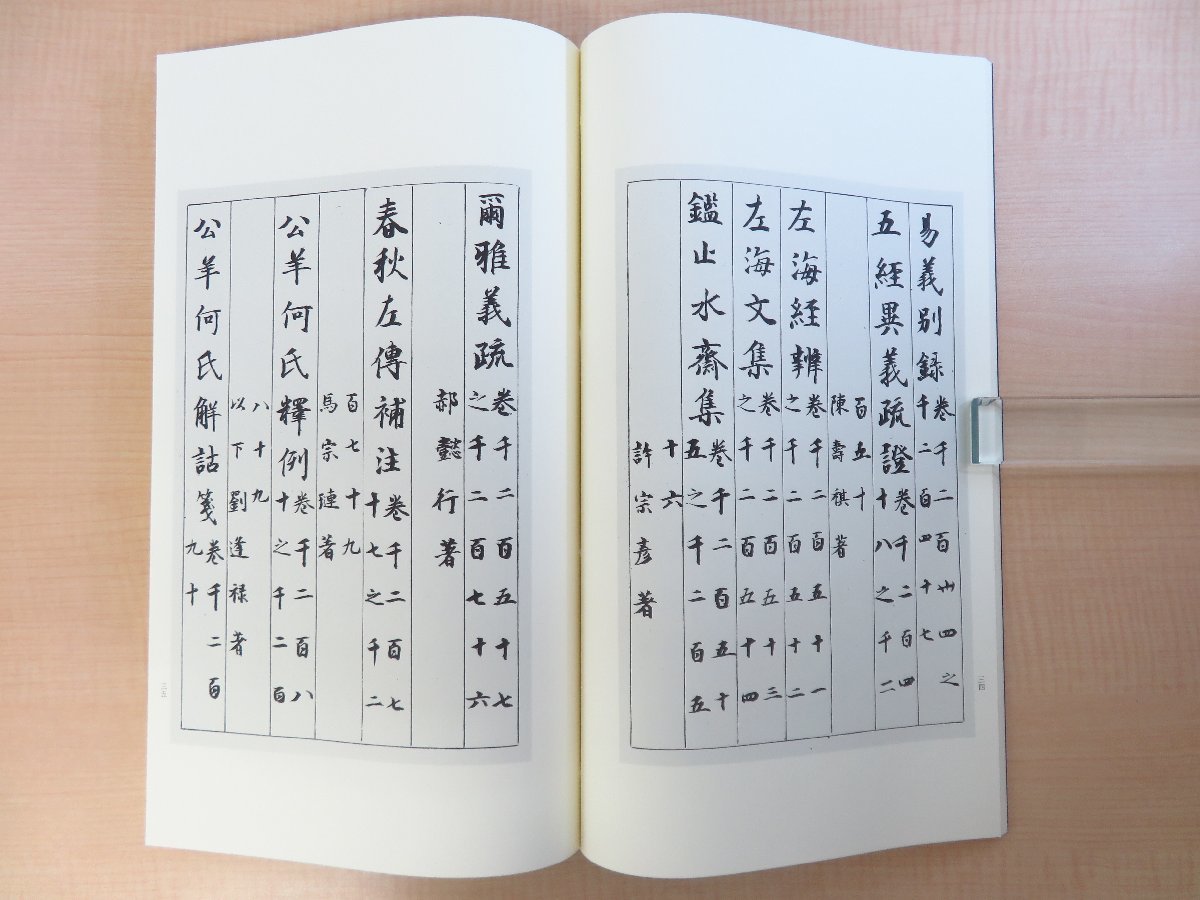 易義別録卷千二百卅四之
千二百四十七
五經異義疏證卷千二百四
十八之千二
百五十
陳壽祺著
左海經辨卷千二百五十一
之千二百五十二
左海文集卷千二百五十三
之千二百五十四
鑑止水齋集卷千二百五十
五之千二百五
十六
許宗彥著
三四
爾雅義疏卷千二百五十七
之千二百七十六
郝懿行著
春秋左傳補注卷千二百七
十七之千二
百七十九
馬宗璉著
公羊何氏釋例卷千二百八
十之千二百
八十九
以下劉逢禄著
公羊何氏解詁箋卷千二百
九十
三五